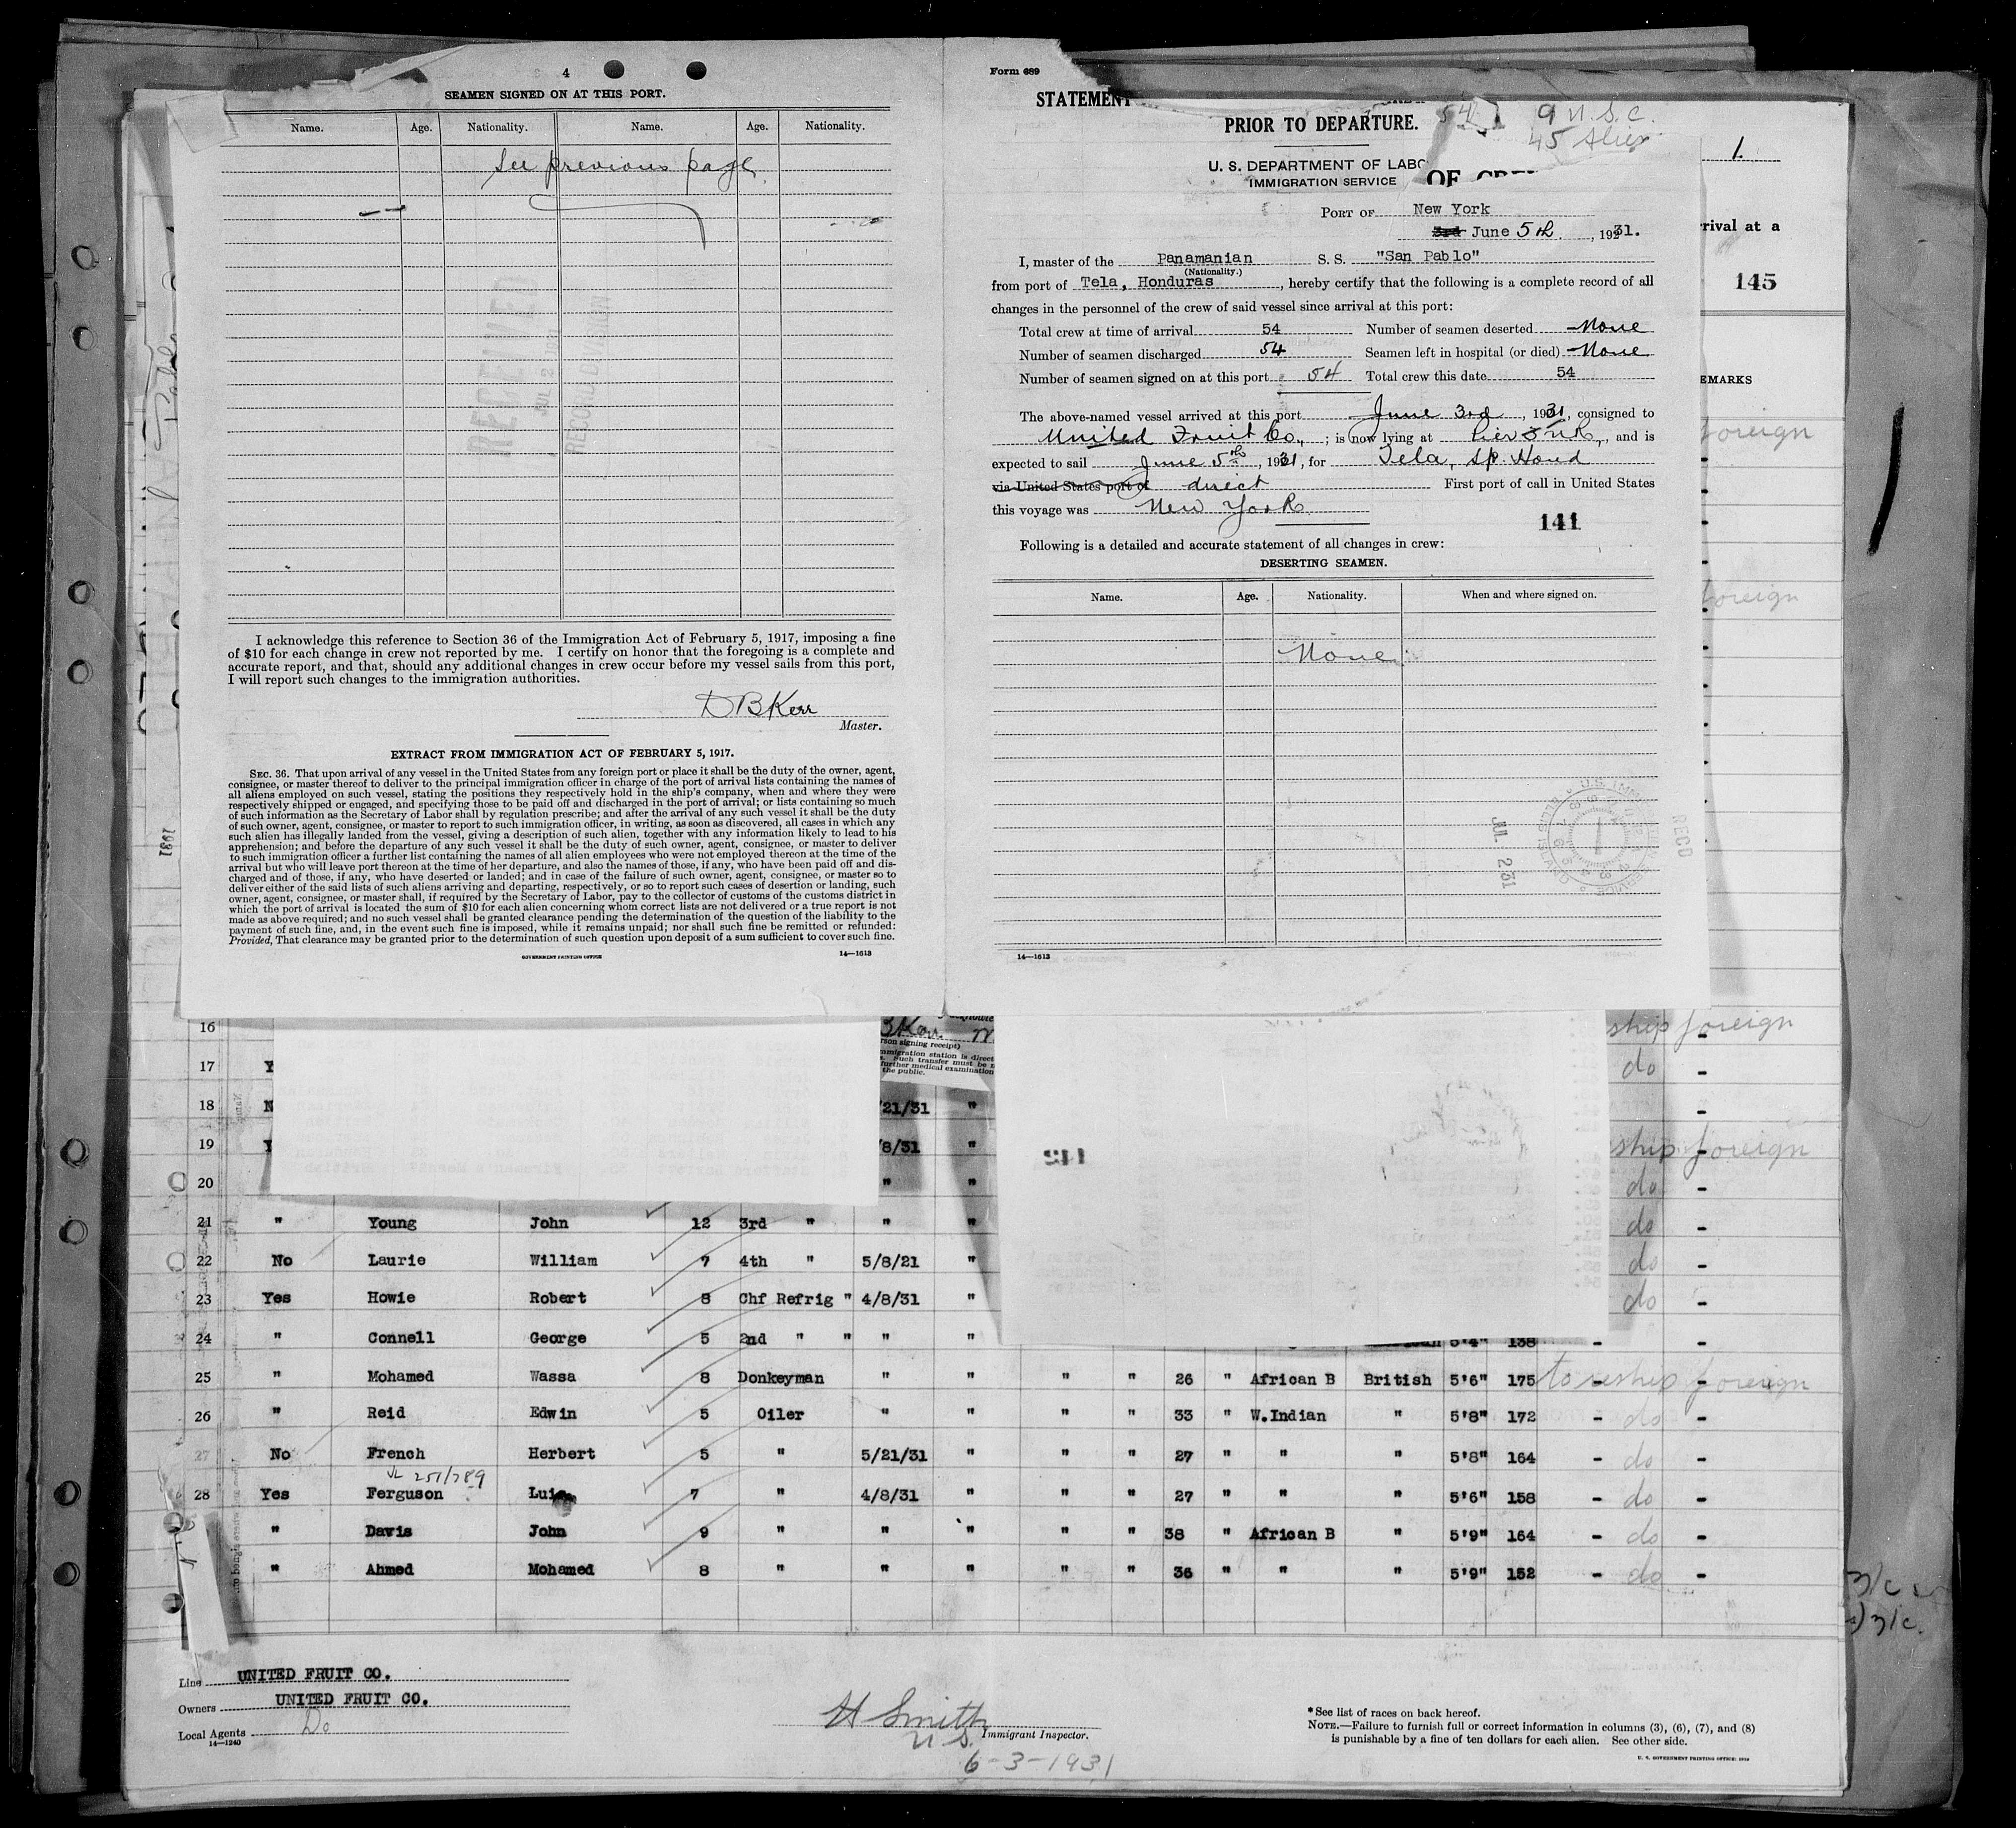 4
SEAMEN SIGNED ON AT THIS PORT.
Name. Age. Nationality. Name. Age. Nationality.
See previous page
RECEIVED
RECORD DIVISION
I acknowledge this reference to Section 36 of the Immigration Act of February 5, 1917, imposing a fine
of $10 for each change in crew not reported by me. I certify on honor that the foregoing is a complete and
accurate report, and that, should any additional changes in crew occur before my vessel sails from this port,
I will report such changes to the immigration authorities.
D B Kerr
Master.
EXTRACT FROM IMMIGRATION ACT OF FEBRUARY 5, 1917.
SEC. 36. That upon arrival of any vessel in the United States from any foreign port or place it shall be the duty of the owner, agent,
consignee, or master thereof to deliver to the principal immigration officer in charge of the port of arrival lists containing the names of
all aliens employed on such vessel, stating the positions they respectively hold in the ship's company, when and where they were
respectively shipped or engaged, and specifying those to be paid off and discharged in the port of arrival; or lists containing so much
of such information as the Secretary of Labor shall by regulation prescribe; and after the arrival of any such vessel it shall be the duty
of such owner, agent, consignee, or master to report to such immigration officer, in writing, as soon as discovered, all cases in which any
such alien has illegally landed from the vessel, giving a description of such alien, together with any information likely to lead to his
apprehension; and before the departure of any such vessel it shall be the duty of such owner, agent, consignee, or master to deliver
to such immigration officer a further list containing the names of all alien employees who were not employed thereon at the time of the
arrival but who will leave port thereon at the time of her departure, and also the names of those, if any, who have been paid off and dis-
charged and of those, if any, who have deserted or landed; and in case of the failure of such owner, agent, consignee, or master so to
deliver either of the said lists of such aliens arriving and departing, respectively, or so to report such cases of desertion or landing, such
owner, agent, consignee, or master shall, if required by the Secretary of Labor, pay to the collector of customs of the customs district in
which the port of arrival is located the sum of $10 for each alien concerning whom correct lists are not delivered or a true report is not
made as above required; and no such vessel shall be granted clearance pending the determination of the question of the liability to the
payment of such fine, and, in the event such fine is imposed, while it remains unpaid; nor shall such fine be remitted or refunded:
Provided, That clearance may be granted prior to the determination of such question upon deposit of a sum sufficient to cover such fine.
GOVERNMENT PRINTING OFFICE 14—1613
Form 689
STATEMENT
PRIOR TO DEPARTURE.
54 9 U.S.C.
45 Alien
U. S. DEPARTMENT OF LABO
IMMIGRATION SERVICE
OF CRE
PORT OF New York
3rd June 5th, 1931.
I, master of the Panamanian S. S. "San Pablo"
(Nationality.)
from port of Tela, Honduras, hereby certify that the following is a complete record of all
changes in the personnel of the crew of said vessel since arrival at this port:
Total crew at time of arrival 54 Number of seamen deserted None
Number of seamen discharged 54 Seamen left in hospital (or died) None
Number of seamen signed on at this port 54 Total crew this date 54
The above-named vessel arrived at this port June 3rd, 1931, consigned to
United Fruit Co.; is now lying at Pier 5 N R, and is
expected to sail June 5th, 1931, for Tela, Sp. Hond
via United States port of direct First port of call in United States
this voyage was New York
141
Following is a detailed and accurate statement of all changes in crew:
DESERTING SEAMEN.
Name. Age. Nationality. When and where signed on.
None
JUL 2 31
RECD
14—1613
1.
rival at a
145
EMARKS
foreign
foreign
1931
16 ship foreign -
17 Y do -
18 N /21/31 " -
19 Y /8/31 " ship foreign -
20 " do -
Kerr
rson signing receipt)
mmigration station is direct
Such transfer must be
further medical examination
the public.
112
21 " Young John 12 3rd " " " do -
22 No Laurie William 7 4th " 5/8/21 " do -
23 Yes Howie Robert 8 Chf Refrig " 4/8/31 " do -
24 " Connell George 5 2nd " " " " 5'4" 138 - -
25 " Mohamed Wassa 8 Donkeyman " " " " 26 " African B British 5'6" 175 - to reship foreign -
26 " Reid Edwin 5 Oiler " " " " 33 " W.Indian " 5'8" 172 - do -
27 No French Herbert 5 " 5/21/31 " " " 27 " " " 5'8" 164 - do -
VL 251/289
28 Yes Ferguson Luis 7 " 4/8/31 " " " 27 " " " 5'6" 158 - do -
" Davis John 9 " " " " " 38 " African B " 5'9" 164 - do -
" Ahmed Mohamed 8 " " " " " 36 " " " 5'9" 152 - do -
Line UNITED FRUIT CO.
Owners UNITED FRUIT CO.
Local Agents Do
14—1240
H Smith
U.S. Immigrant Inspector.
6-3-1931
*See list of races on back hereof.
NOTE.—Failure to furnish full or correct information in columns (3), (6), (7), and (8)
is punishable by a fine of ten dollars for each alien. See other side.
U. S. GOVERNMENT PRINTING OFFICE: 1929